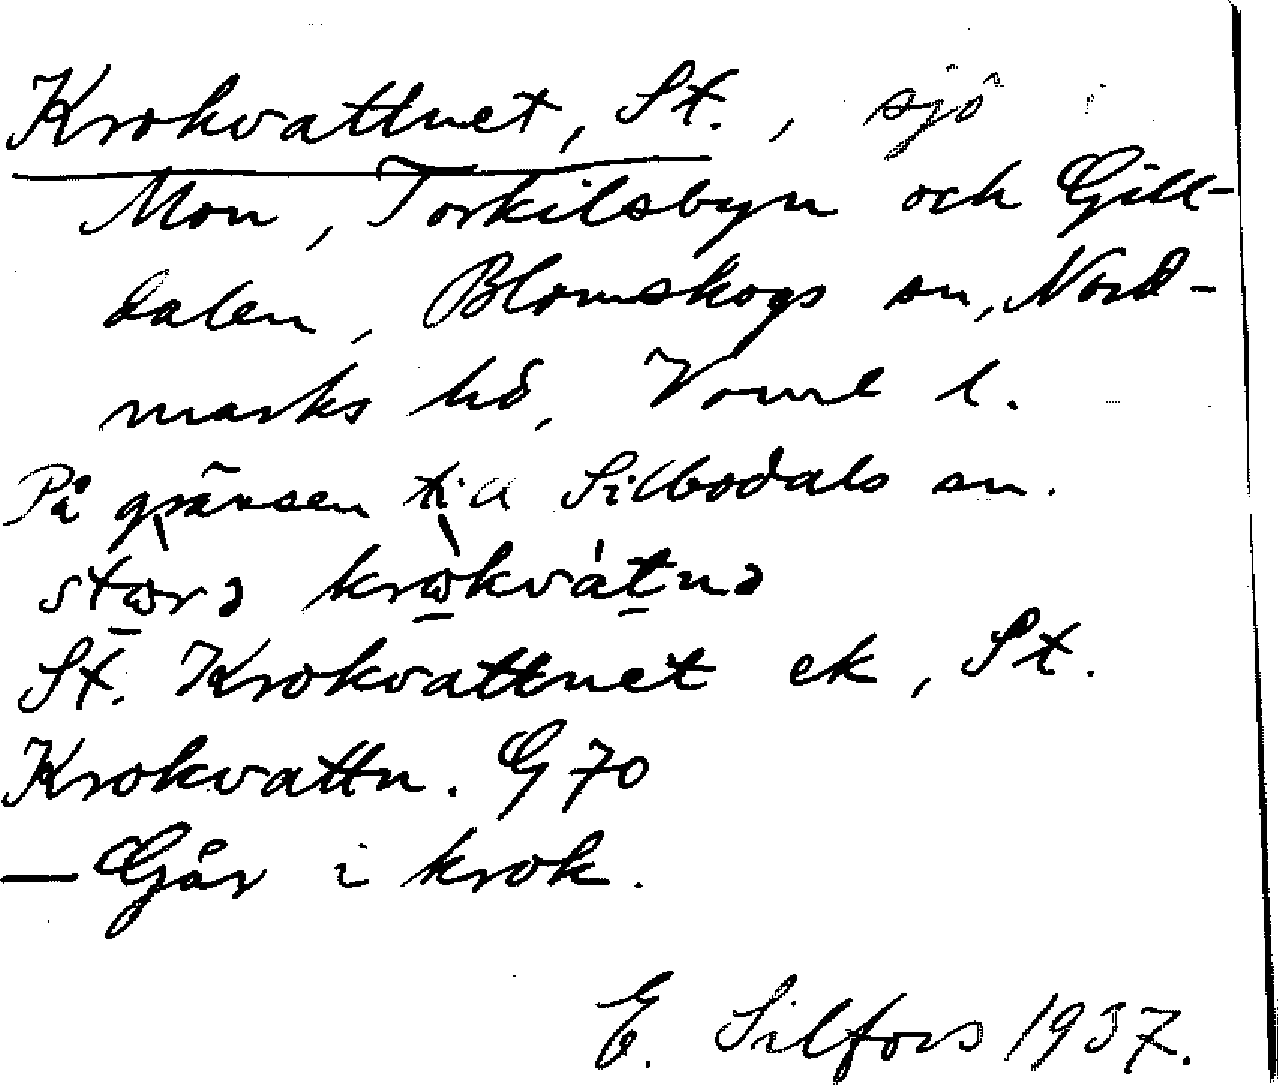 Krokvattnet, St., sjö i
Mon, Torkilsbyn och Gill-
dalen, Blomskogs sn, Nord-
marks hd, Vrml l.
På gränsen till Silbodals sn.
stɷ̀rə krɷ̀kvátnə
St. Krokvattnet ek, St.
Krokvattn. G 70
— Går i krok.
E. Silfors 1937.